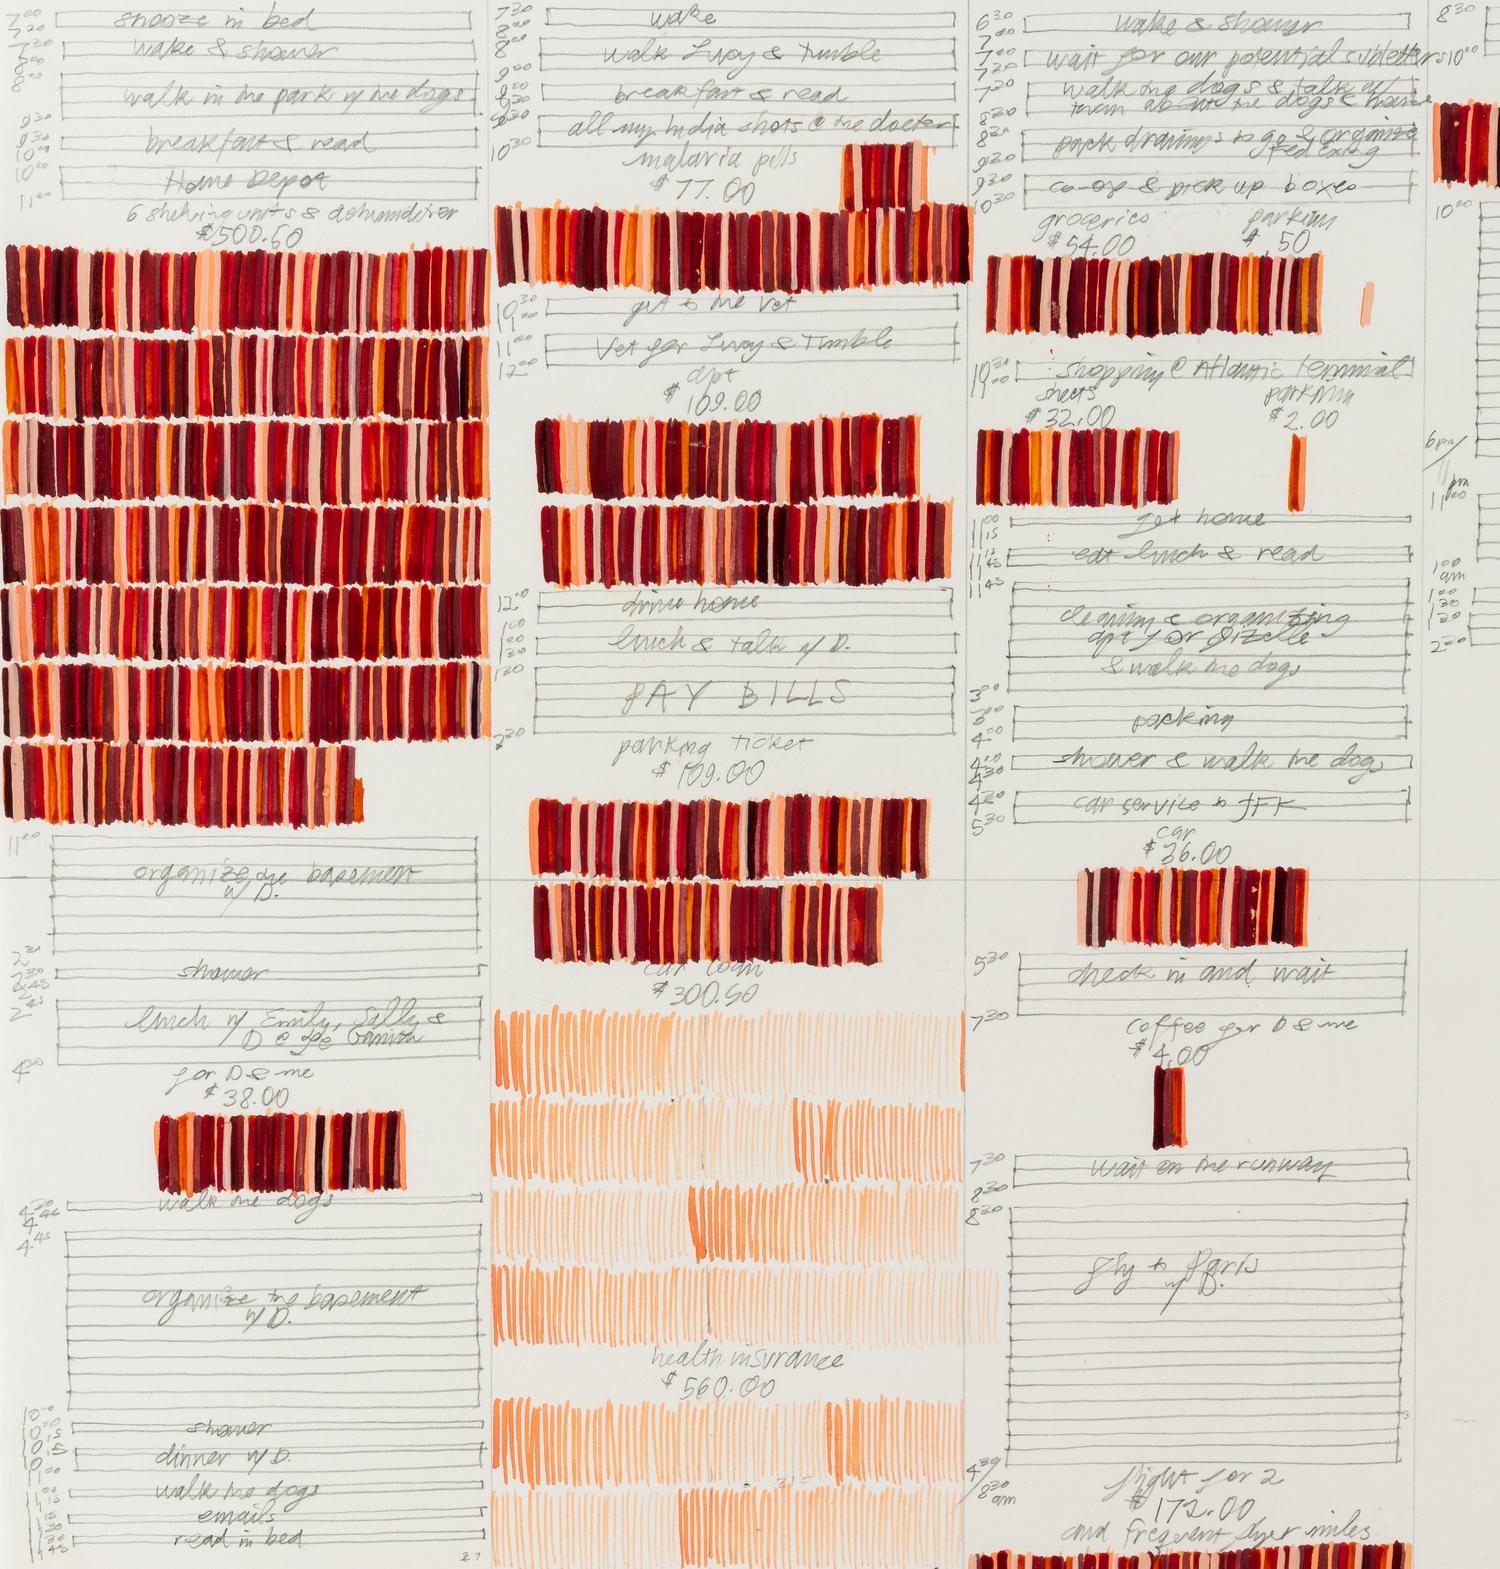 7:00
snooze in bed
7:30
wake & shower
8:00
walk in the park w/ the dogs
9:30
breakfast & read
10:00
Home Depot
11:00
6 shelving units & dehumidifier
$500.50
11:00
organize the basement
w/ D.
2:30
shower
2:45
lunch w/ Emily, Sally &
D @
4:30
for D & me
$38.00
4:30
walk the dogs
4:45
organize the basement
w/ D.
10:00
shower
dinner w/ D.
walk the dogs
emails
read in bed
27
7:30
wake
8:00
walk Lucy & Tumble
9:00
breakfast & read
9:30
all my India shots @ the doctor
10:30
malaria pills
$77.00
10:30
get to the vet
11:00
Vet for Lucy & Tumble
12:00
apt
$109.00
12:00
drive home
1:00
lunch & talk w/ D.
1:30
PAY BILLS
2:30
parking ticket
$109.00
car loan
$300.50
health insurance
$560.00
6:30
wake & shower
7:00
wait for our potential subletters
7:30
walk the dogs & talk w/
them about the dogs & house
8:30
pack drawings to go & organize
Fed Exing
9:30
co-op & pick up boxes
10:30
groceries parking
$54.00 $.50
10:30
shopping @ Atlantic terminal
sheets parking
$32.00 $2.00
11:00
get home
11:15
eat lunch & read
11:45
cleaning & organizing
apt for Gizelle
& walk the dogs
3:00
packing
4:00
shower & walk the dogs
4:30
car service to JFK
5:30
car
$36.00
5:30
check in and wait
7:30
coffee for D & me
$4.00
7:30
wait on the runway
8:30
8:30
fly to Paris
w/ D.
4:30/
8:30
am
flight for 2
$172.00
and frequent flyer miles
8:30
10:00
10:00
6pm/
11
pm
11:00
1:00
am
1:00
1:30
1:30
2:00